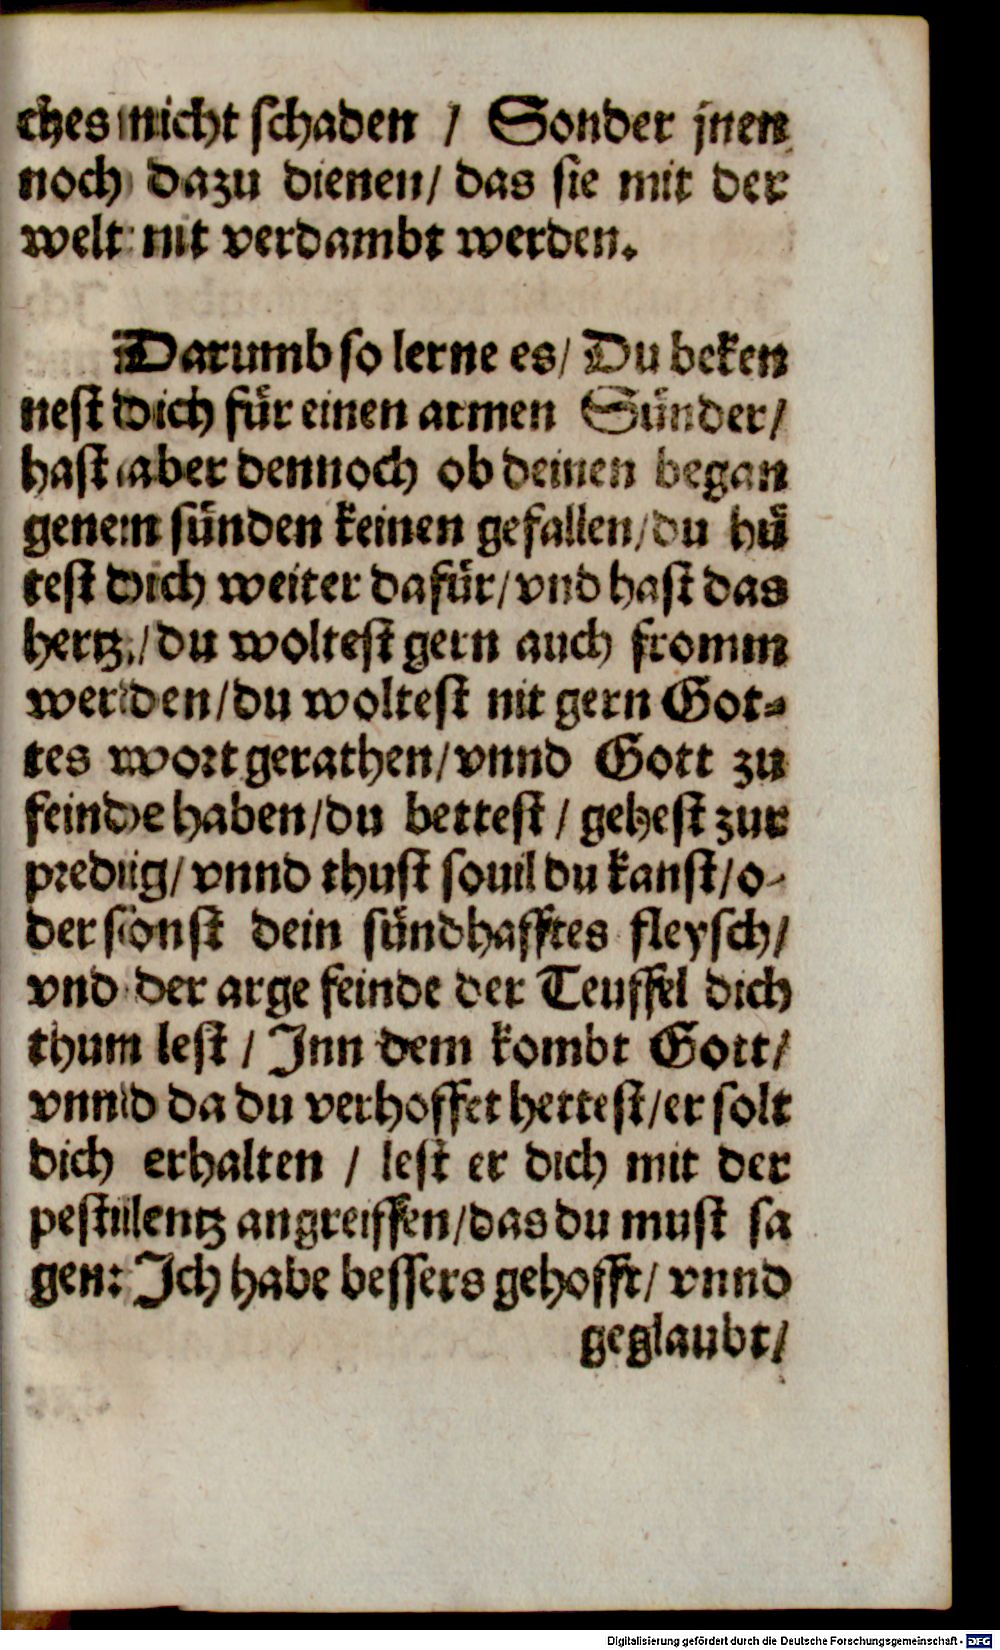 ches nicht schaden / Sonder jnen
noch dazu dienen/ das sie mit der
welt nit verdambt werden.
Darumb so lerne es/ Du beken
nest dich für einen armen Sünder/
hast aber dennoch ob deinen began
genen sünden keinen gefallen/du hü
test dich weiter dafür/vnd hast das
hertz/du woltest gern auch fromm
werden/du woltest nit gern Got⸗
tes wort gerathen/vnnd Gott zu
feinde haben/du bettest / gehest zur
predig/ vnnd thust souil du kanst/o⸗
der sonst dein sündhafftes fleysch/
vnd der arge feinde der Teuffel dich
thum lest / Inn dem kombt Gott/
vnnd da du verhoffet hettest/er solt
dich erhalten / lest er dich mit der
pestilentz angreiffen/das du must sa
gen: Ich habe bessers gehofft/ vnnd
geglaubt/
Digitalisierung gefördert durch die Deutsche Forschungsgemeinschaft - DFG